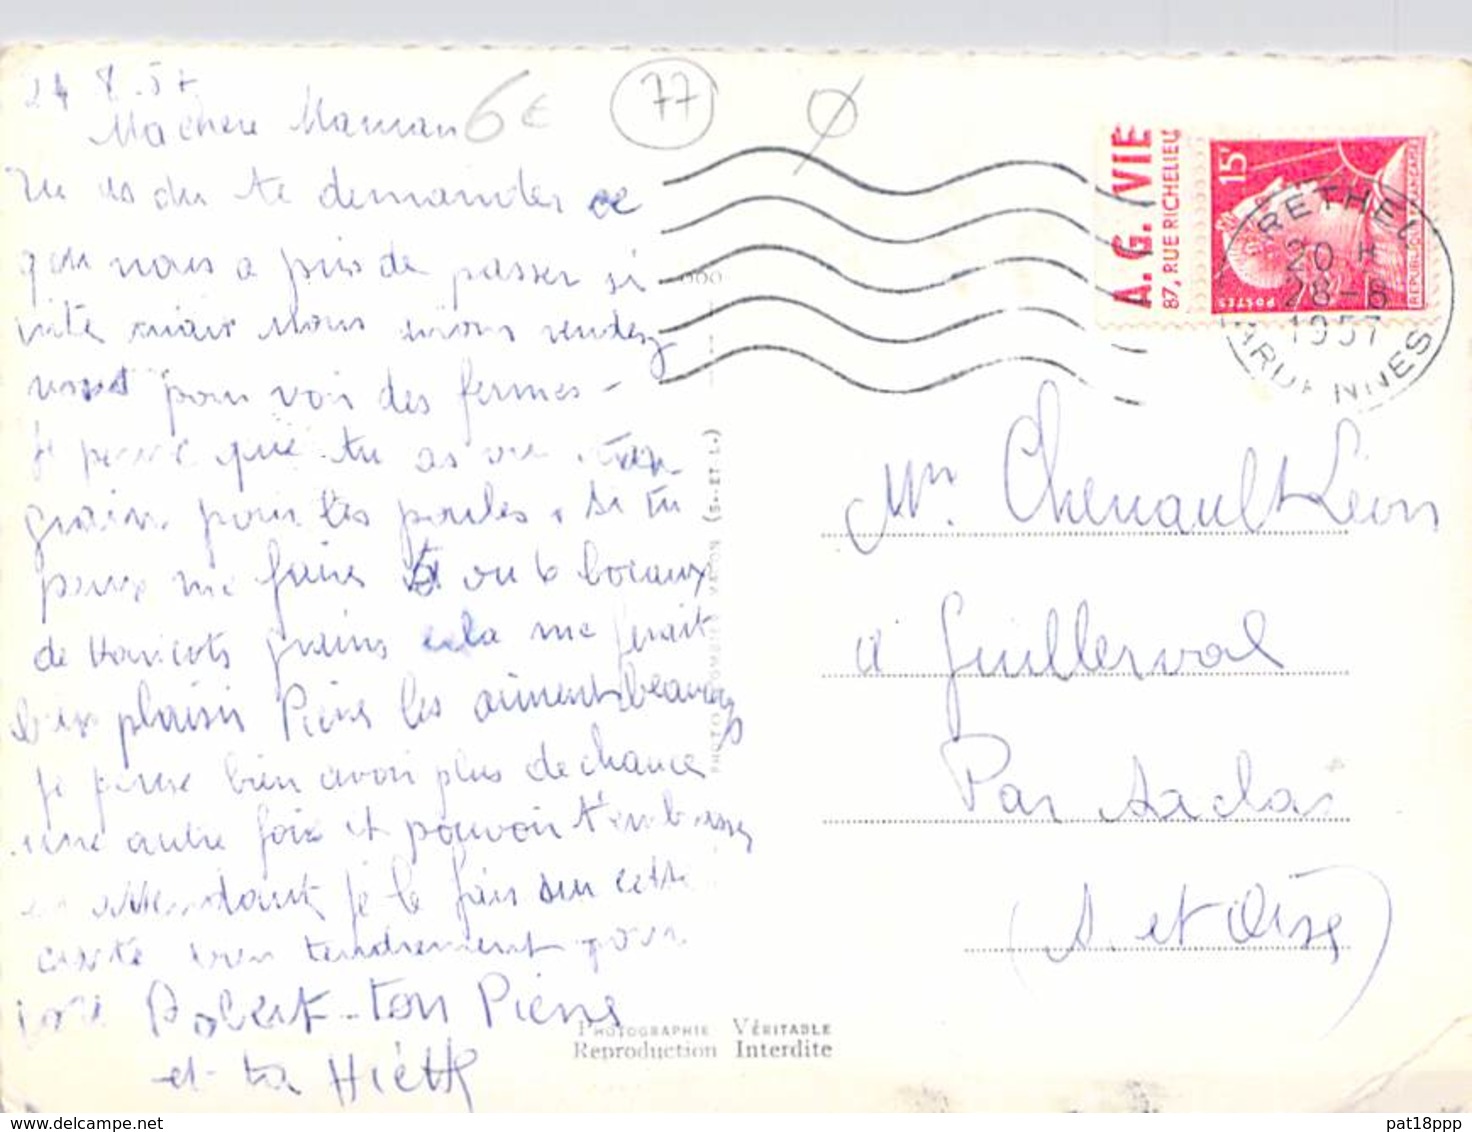 24 8.57
Ma chere Maman
Tu as du te demander ce
que nous a pris de passer si
vite mais nous avions rendez
pour voir des fermes -
Je pense que tu as vu
grain pour les poules. Si tu
peux me faire 5 ou 6 bocaux
de haricots grains cela me ferait
bien plaisir Pierre les aiment beaucoup
Je pense bien avoir plus de chance
une autre fois et pouvoir t'embrasser
en attendant je le fais sur cette
carte bien tendrement pour
Robert - ton Pierre
et ta
6€
77
A. G. VIE
87, RUE RICHELIEU
15F
POSTES
REPUBLIQUE FRANÇAISE
RETHEL
20 H
28-8
1957
ARDENNES
Mr. Chenault Léon
à Guillerval
Par Saclas
(S. et Oise)
PHOTO COMBIER MACON (S.-ET-L.)
PHOTOGRAPHIE VÉRITABLE
Reproduction Interdite
delcampe.net
pat18ppp